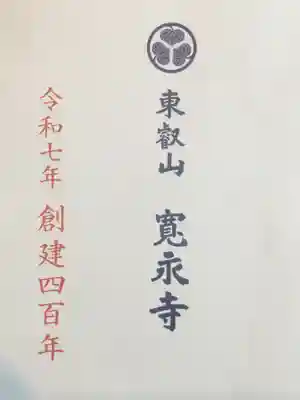 東叡山 寛永寺
令和七年 創建四百年